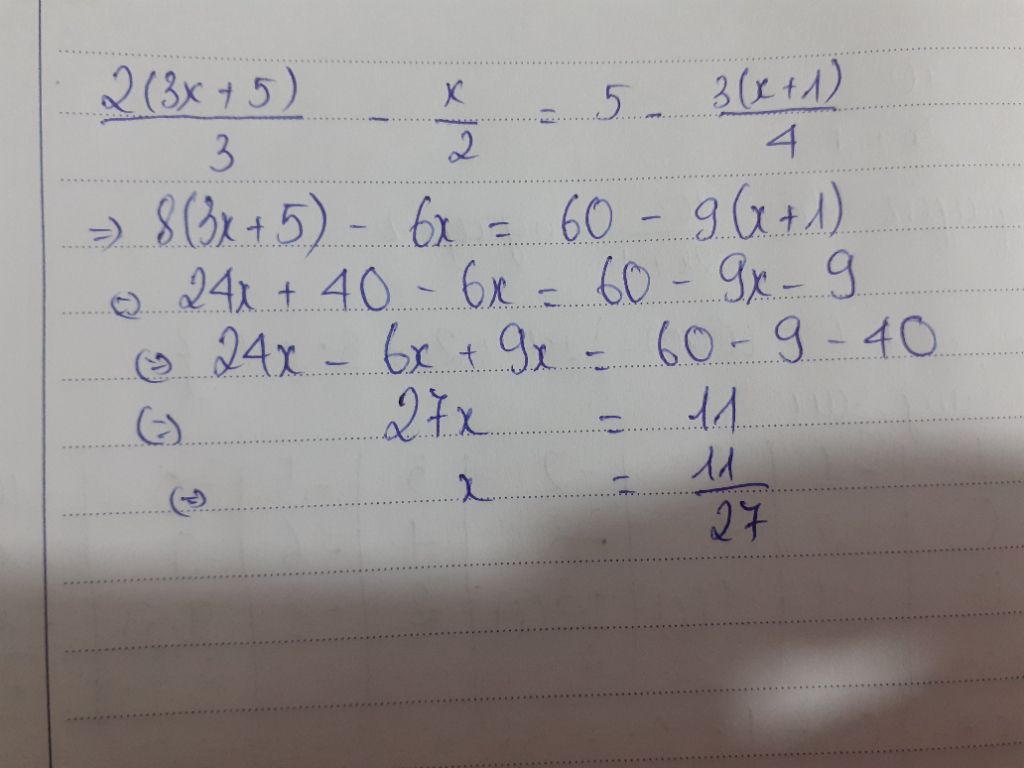 2(3x + 5)/3 - x/2 = 5 - 3(x+1)/4
=> 8(3x + 5) - 6x = 60 - 9(x+1)
<=> 24x + 40 - 6x = 60 - 9x - 9
<=> 24x - 6x + 9x = 60 - 9 - 40
<=> 27x = 11
<=> x = 11/27